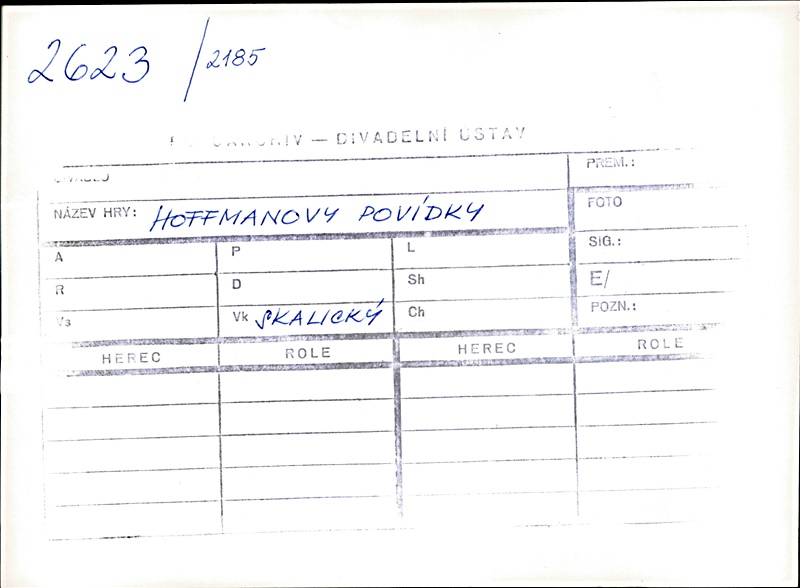 2623 /2185
— DIVADELNÍ ÚSTAV
PREM.:
NÁZEV HRY: HOFFMANOVY POVÍDKY
FOTO
A P L SIG.:
R D Sh E/
Vs Vk SKALICKÝ Ch POZN.:
HEREC ROLE HEREC ROLE